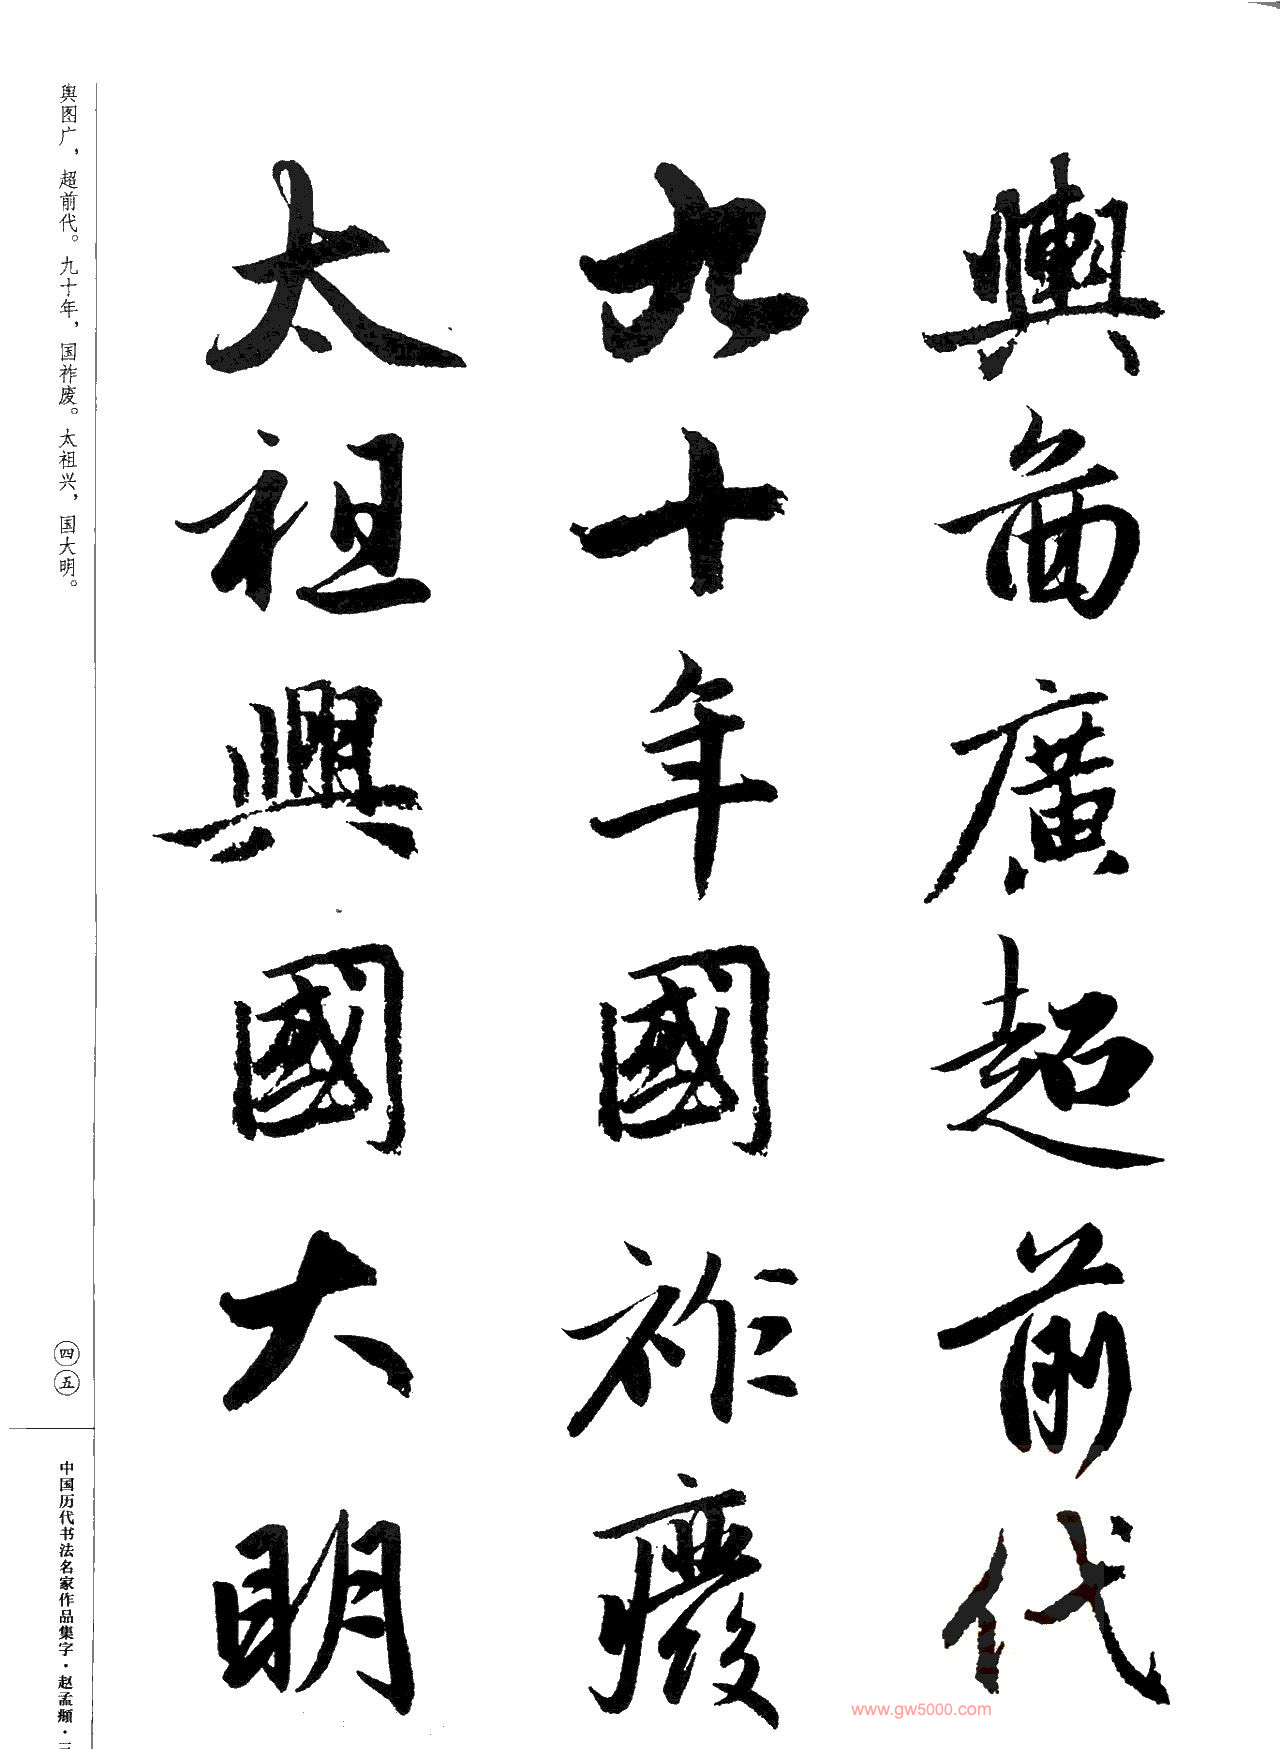 輿圖廣超前代
九十年國祚廢
太祖興國大明
舆图广，超前代。九十年，国祚废。太祖兴，国大明。
四五
中国历代书法名家作品集字·赵孟頫·三
www.gw5000.com